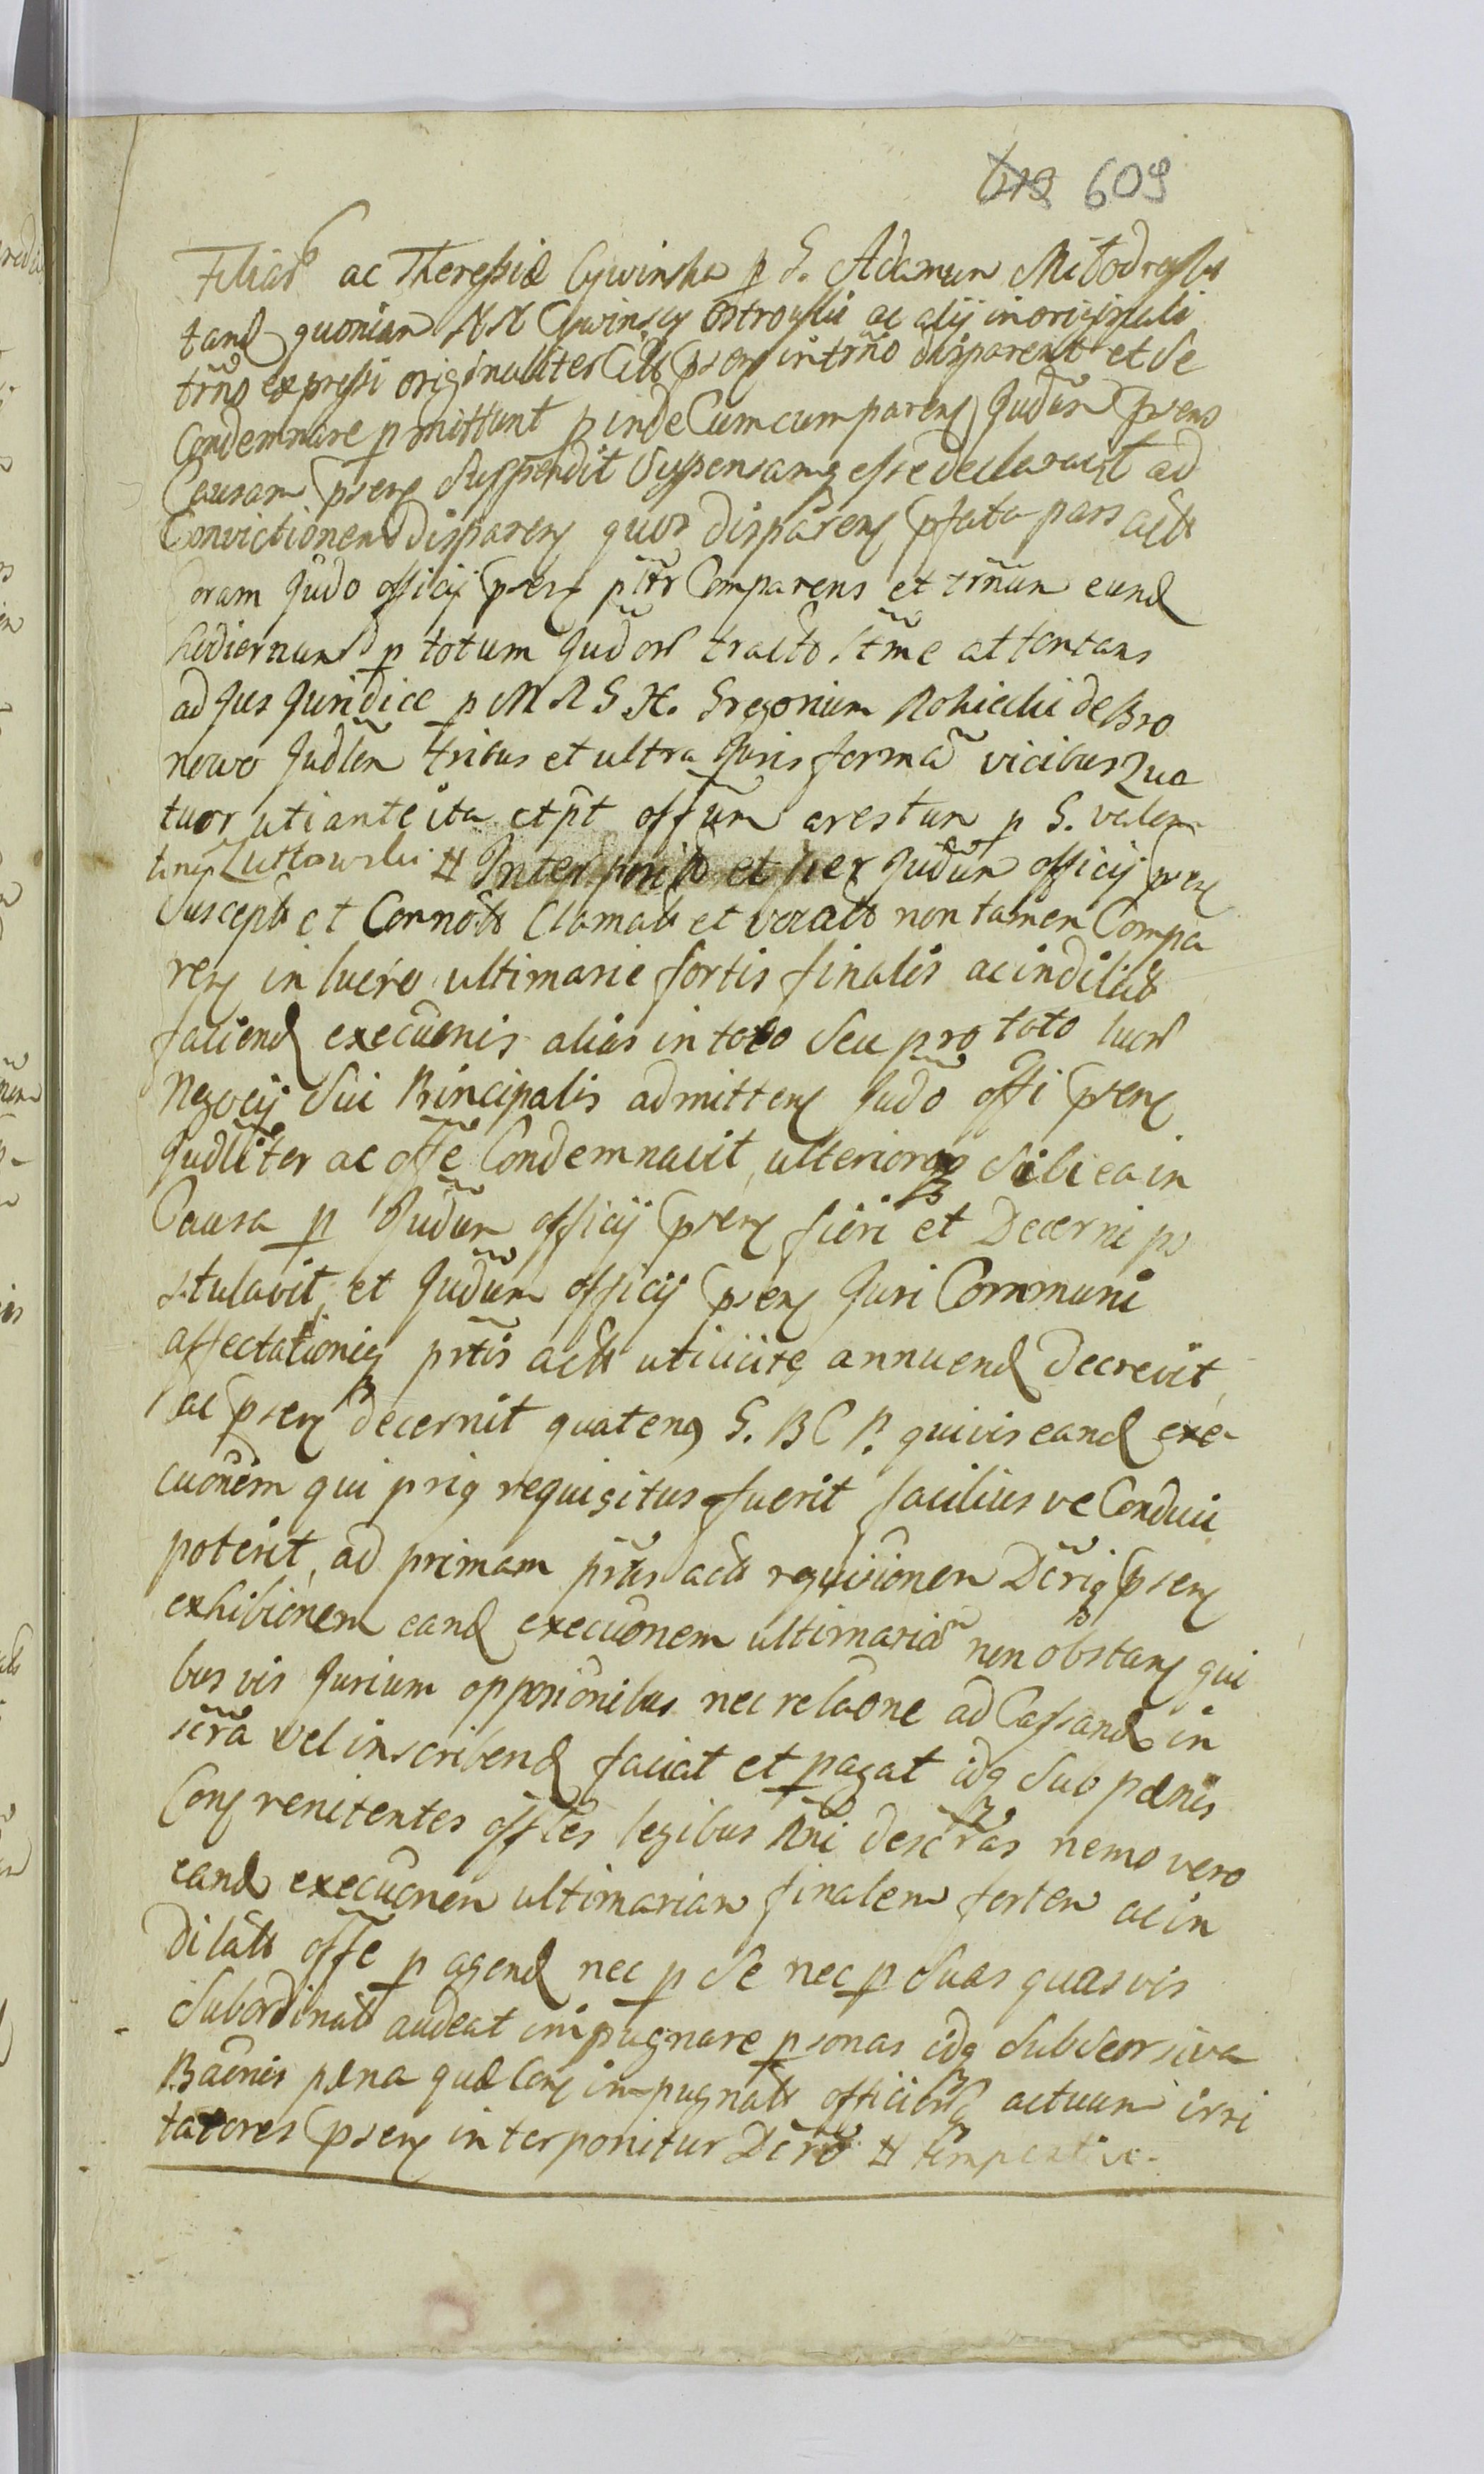 609
Filiab ac Theressiæ Cywinska p G. Adamum
tand quoniam NN Cywinscy Ostrowski ac alij in originali
trno expressi originaliter Citt psen in trno disparent et se
Condemnare pmittunt pinde Cum cumparen Judm psens
Causam psen Suspendit Suspensamq esse declaravit ad
Convictionem disparen quos disparen pfata pars actt
Coram Judo officij psen pttr Comparens et trnum eund
hodiernum p totum Judory tracto sttme attentans
ad Jus Juridice p M N G. H. Gregorium Rokicki de Bro
nowo Judlem tribus et ultra Juris forma vicibus Qua
tuor uti ante ita et pt offum arestum p G. valen
tinu Lutowski H Interposit et per Judum officij psen
Suscept et Connott Clamatt et vocatt non tamen Compa
ren in lucro ultimarie fortis finalis ac indilatt
faciend execuonis alias in toto Seu pro toto lucro
Negocij Sui Principalis admitten Judo offi psen
Judliter ac offe Condemnavit, ulteriorq sibi ea in
Causa p Judum officij psen fieri et Decerni po
stulavit, et Judum officij psen Juri Communi
affectationiq prtis actt utilitte annuend Decrevit,
ac psen decernit quatenq G. B C P. quivis eand exe-
cuonem qui priq requisitus fuerit faciliusve Conduci
poterit, ad primam prtis actt requisionem Dcriq psen
exhibionem eand execuonem ultimaria non obstan qui
busvis Jurium opposionibus nec relaone ad Cassand in
scra vel inscribend faciat et pagat idq sub pænis
Con renitentes offles legibus Rni descras nemo vero
eand execuonem ultimariam finalem fortem ac in
dilatt offe pagend nec p se nec p suas quasvis
Subordinatt audeat impugnare psonas idq sub seorsiva
Baonis pæna quæ Con impugnatt officiosq actuum irri
tatores psen interponitur Dcro H tempestive.